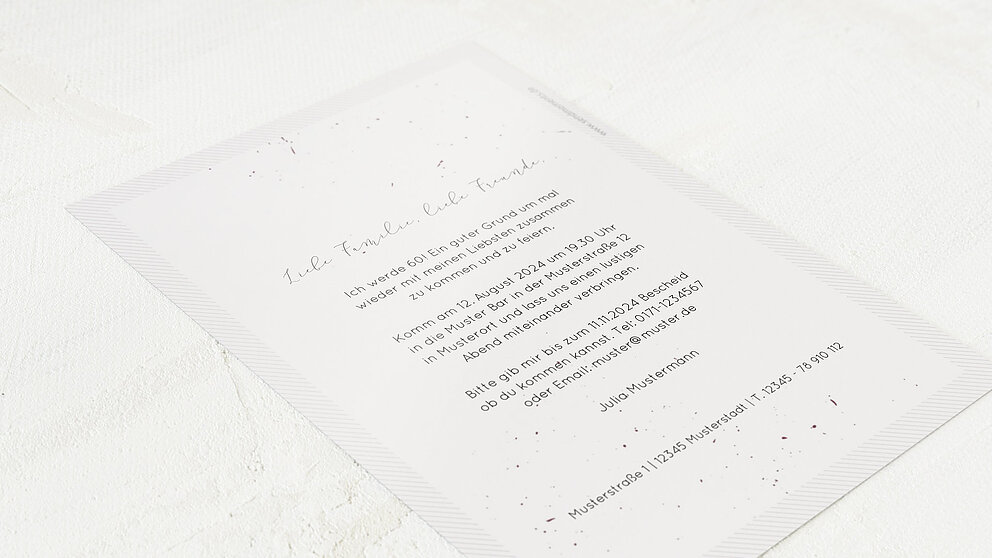 Liebe Familie, liebe Freunde,
Ich werde 60! Ein guter Grund um mal
wieder mit meinen Liebsten zusammen
zu kommen und zu feiern.
Komm am 12. August 2024 um 19.30 Uhr
in die Muster Bar in der Musterstraße 12
in Musterort und lass uns einen lustigen
Abend miteinander verbringen.
Bitte gib mir bis zum 11.11.2024 Bescheid
ob du kommen kannst. Tel: 0171-1234567
oder Email: muster@muster.de
Julia Mustermann
Musterstraße 1 | 12345 Musterstadt | T. 12345 - 78 910 112